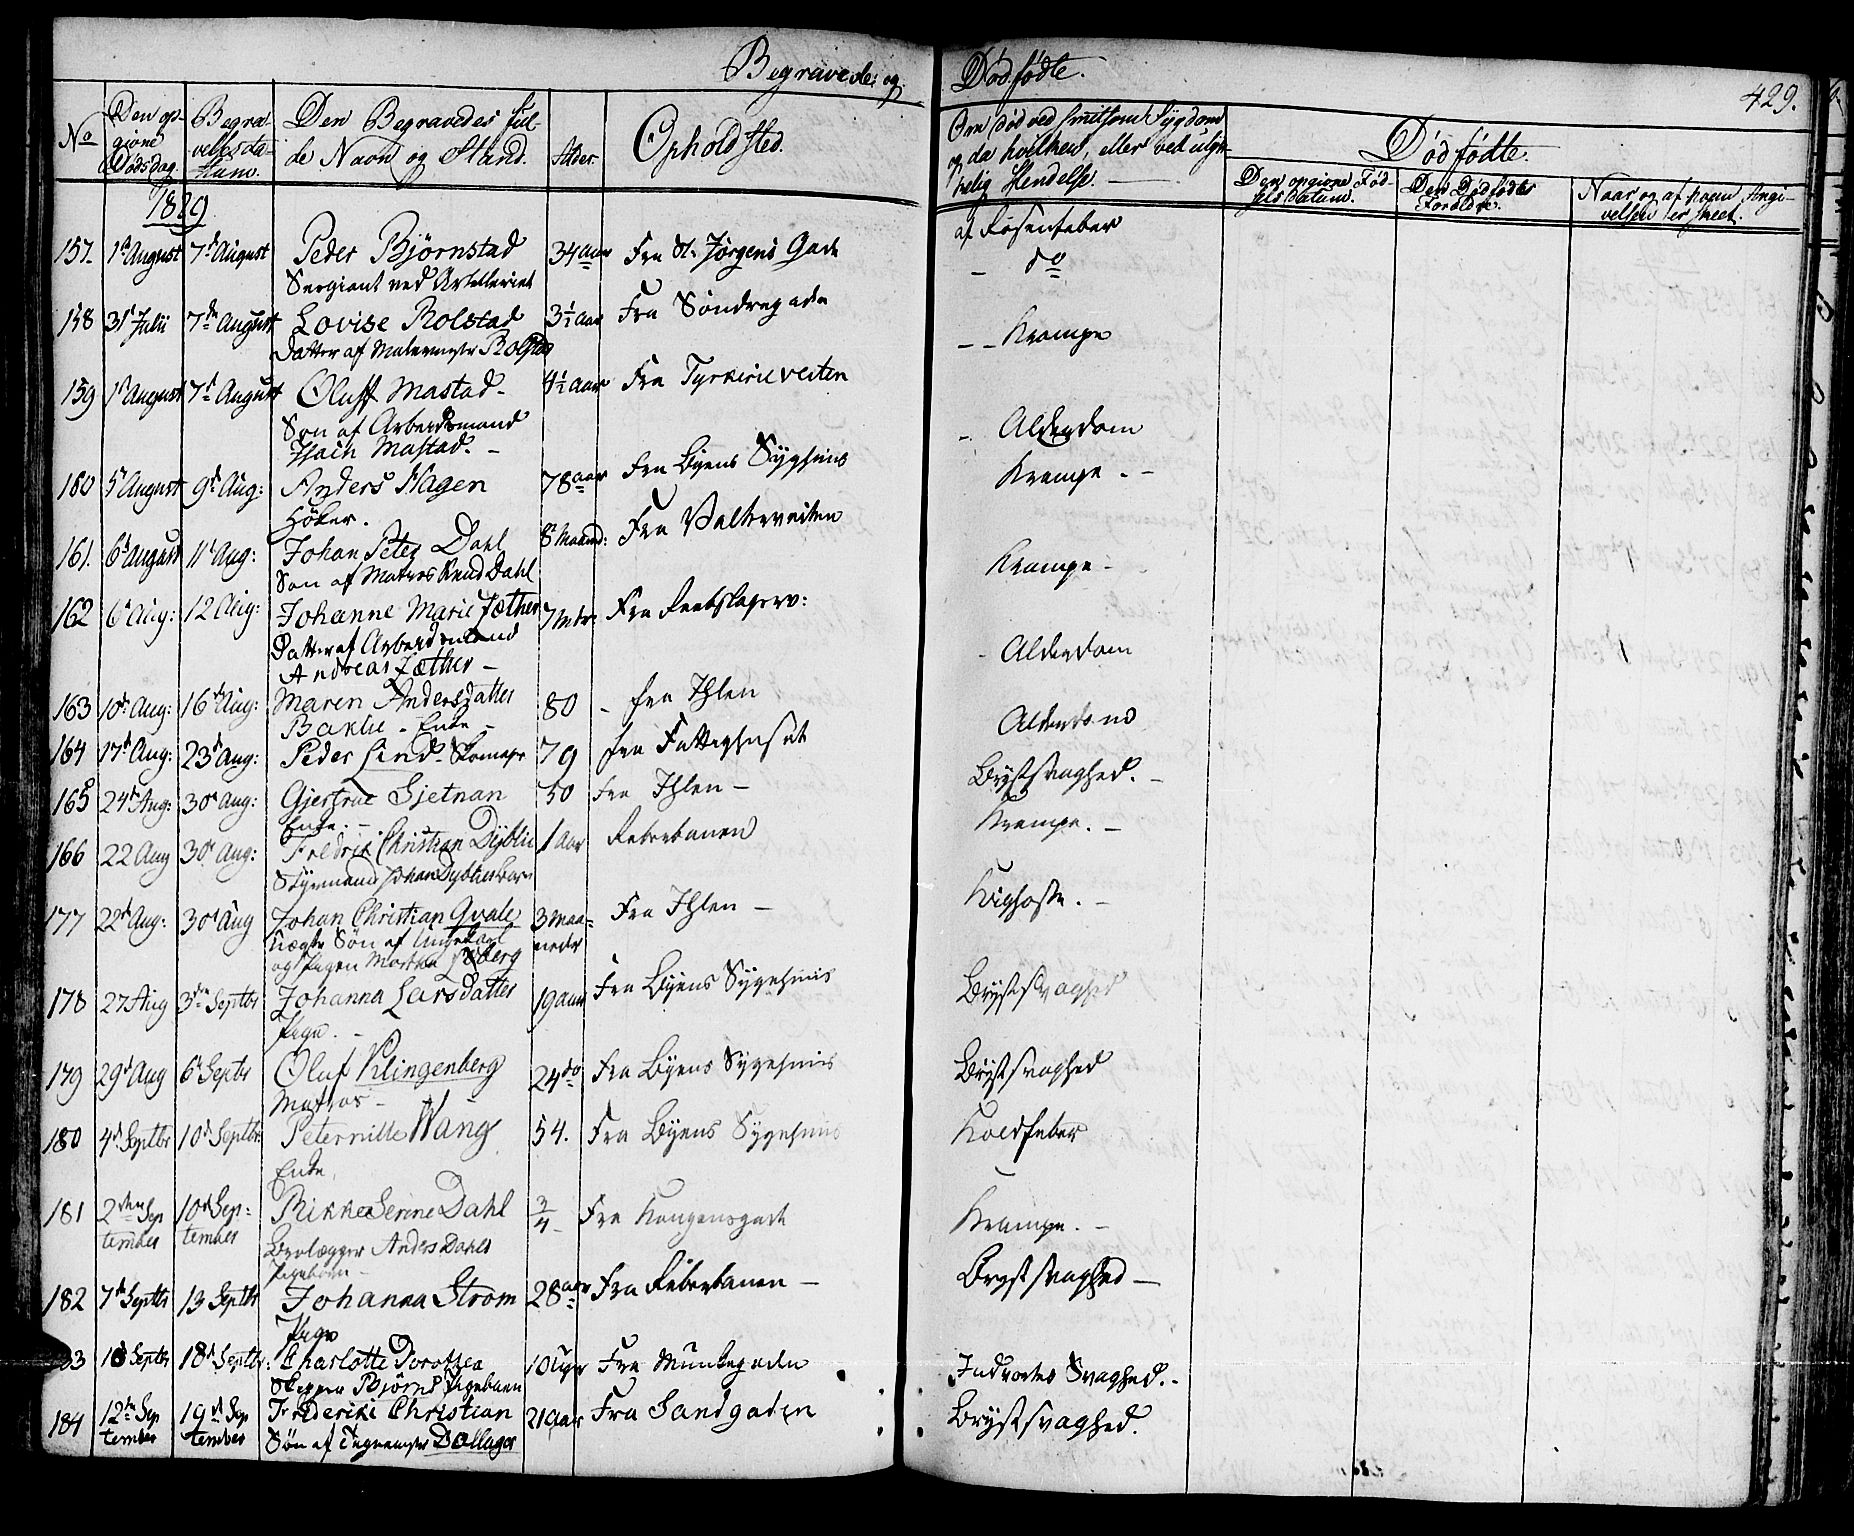 Begravede og Dødfødte. 429.
No Den opgivne Dødsdag. Begravelsesdatum. Den Begravedes fulde Navn og Stand. Alder. Opholdsted. Om død ved smitsom Sygdom og da hvilken, eller ved ulykkelig Hendelse. Dødfødte.
Den opgivne Fødsels datum. Den Dødfødtes Forældre. Naar og af hvem Angivelsen er skeet.
1829
157. 1st August 7de August Peder Bjørnstad 34 aar Fra St. Jørgens Gade af Rosenfeber
Sergiant ved Artilleriet - do
158 31t Julii 7de August Lovise Rolstad 3½ aar Fra Søndregaden
Datter af Malermester Rolstad - - Krampe
159 1st August 7de August Oluff Mastad 4½ aar Fra Tyskeveiten
Søn af Arbeidsmand
Mastad. -
- Alderdom
180 5t August 9de Aug: Anders Hagen 78 aar Fra Byens Sygehuus Krampe. -
Høker.
161. 6t August 11t Aug: Johan Peter Dahl 8 Maaned: Fra Valterveiten
Søn af Matros Knud Dahl Krampe -
162 6t Aug: 12 Aug: Johanne Marie Sæther 7 Mdr. Fra Reebslagerv:
Datter af Arbeidsmand
Andreas Sæther -
- Alderdom
163 10de Aug: 16de Aug: Maren Andersdatter 80 - fra Ihlen
Baklie - Enke - Alderdom
164 17de Aug: 23de Aug: Peder Lind - Skomager 79 fra Fattighuset Brystsvaghed. -
165 24de Aug: 30de Aug: Gjertrue Sjetnan 50 fra Ihlen -
Enke. - Krampe. -
166 22 Aug 30de Aug: Fredrik Christian Dyblie 1 Aar Reberbanen
Styrmand Johan Dyblies Barn Kighoste. -
177 22de Aug: 30de Aug Johan Christian Qvale 3 Maaneder Fra Ihlen -
uægte Søn af Ungekarl
og Pigen Martha
178 27 Aug 3die Septbr Johanna Larsdatter 19 aar Fra Byens Sygehuus Brystsvaghed
Pige. -
179 29de Aug 6te Septbr Oluf Klingenberg 24 do Fra Byens Sygehuus Brystsvaghed
Matros -
180 4de Septbr 10de Septbr: Peternille Wang 54. Fra Byens Sygehuus Koldfeber
Enke
181 2den September 10de September Rikka Serine Dahl ¾ - Fra Kongensgade Krampe. -
Brolægger Anders Dahls
Pigebarn -
182 7de Septbr 13 Septbr Johanna Strøm 28 aar Fra Reberbanen - Brystsvaghed -
Pige
183 10 Septbr 18de Septbr: Charlotte Dorothea 10 Uger Fra Munkegaden Indvortes Svaghed. -
Skipper Bjørns Pigebarn
184 12te September 19de September Frideriki Christian 21 aar Fra Sandgaden Brystsvaghed.
Søn af Dollager